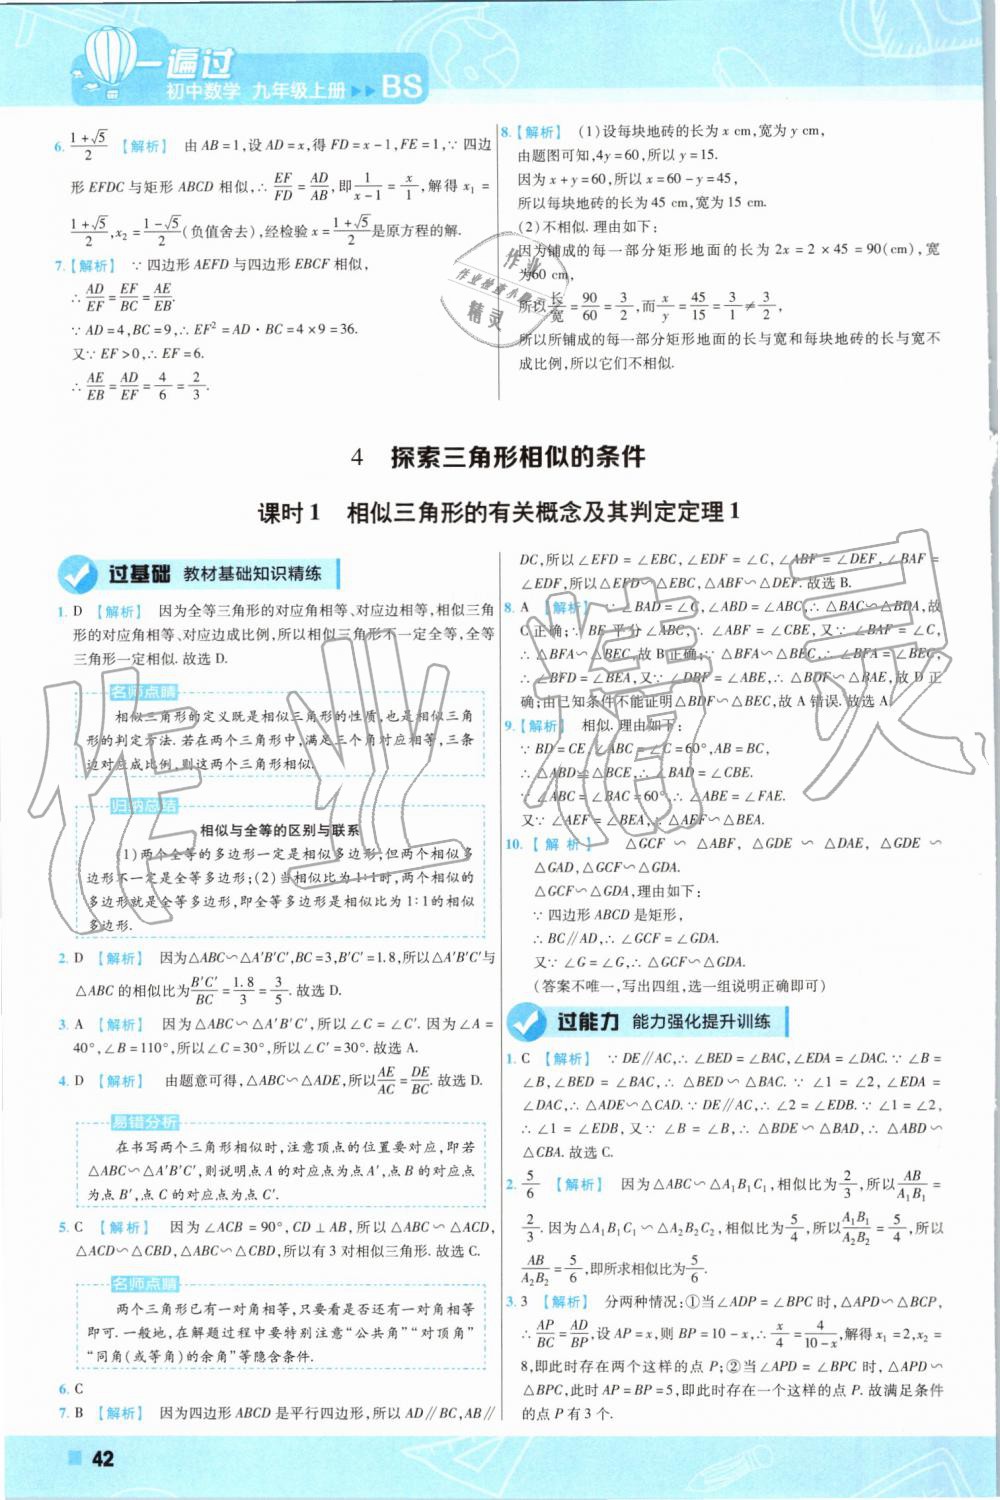 一遍过
初中数学 九年级上册 ▸▸ BS
6. (1+√5)/2 【解析】 由 AB=1,设 AD=x,得 FD=x-1,FE=1,∵ 四边
形 EFDC 与矩形 ABCD 相似,∴ EF/FD = AD/AB,即 1/(x-1) = x/1,解得 x₁ =
(1+√5)/2,x₂ = (1-√5)/2(负值舍去),经检验 x = (1+√5)/2 是原方程的解.
7.【解析】 ∵ 四边形 AEFD 与四边形 EBCF 相似,
∴ AD/EF = EF/BC = AE/EB.
∵ AD=4,BC=9,∴ EF²=AD·BC=4×9=36.
又∵ EF>0,∴ EF=6.
∴ AE/EB = AD/EF = 4/6 = 2/3.
8.【解析】 (1)设每块地砖的长为 x cm,宽为 y cm,
由题图可知,4y=60,所以 y=15.
因为 x+y=60,所以 x=60-y=45,
所以每块地砖的长为 45 cm,宽为 15 cm.
(2)不相似.理由如下:
因为铺成的每一部分矩形地面的长为 2x=2×45=90(cm),宽
为60 cm,
所以 长/宽 = 90/60 = 3/2,而 x/y = 45/15 = 3/1 ≠ 3/2,
所以所铺成的每一部分矩形地面的长与宽和每块地砖的长与宽不
成比例,所以它们不相似.
4 探索三角形相似的条件
课时1 相似三角形的有关概念及其判定定理1
过基础 教材基础知识精练
1. D 【解析】 因为全等三角形的对应角相等、对应边相等,相似三角
形的对应角相等、对应边成比例,所以相似三角形不一定全等,全等
三角形一定相似.故选 D.
名师点睛
相似三角形的定义既是相似三角形的性质,也是相似三角
形的判定方法.若在两个三角形中,满足三个角对应相等,三条
边对应成比例,则这两个三角形相似.
归纳总结
相似与全等的区别与联系
(1)两个全等的多边形一定是相似多边形,但两个相似多
边形不一定是全等多边形;(2)当相似比为1∶1时,两个相似多
边形就是全等多边形,即全等多边形是相似比为1∶1的相似
多边形.
2. D 【解析】 因为△ABC∽△A′B′C′,BC=3,B′C′=1.8,所以△A′B′C′与
△ABC 的相似比为 B′C′/BC = 1.8/3 = 3/5.故选 D.
3. A 【解析】 因为△ABC∽△A′B′C′,所以∠C=∠C′.因为∠A=
40°,∠B=110°,所以∠C=30°,所以∠C′=30°.故选 A.
4. D 【解析】 由题意可得,△ABC∽△ADE,所以 AE/AC = DE/BC.故选 D.
易错分析
在书写两个三角形相似时,注意顶点的位置要对应,即若
△ABC∽△A′B′C′,则说明点 A 的对应点为点 A′,点 B 的对应点
为点 B′,点 C 的对应点为点 C′.
5. C 【解析】 因为∠ACB=90°,CD⊥AB,所以△ABC∽△ACD,
△ACD∽△CBD,△ABC∽△CBD,所以有 3 对相似三角形.故选 C.
名师点睛
两个三角形已有一对角相等,只要看是否还有一对角对应相等
即可.一般地,在解题过程中要特别注意“公共角”“对顶角”
“同角(或等角)的余角”等隐含条件.
6. C
7. B 【解析】 因为四边形 ABCD 是平行四边形,所以 AD∥BC,AB∥
DC,所以∠EFD=∠EBC,∠EDF=∠C,∠ABF=∠DEF,∠BAF=
∠EDF,所以△EFD∽△EBC,△ABF∽△DEF.故选 B.
8. A 【解析】 ∵∠BAD=∠C,∠ABD=∠ABC,∴△BAC∽△BDA,故
C 正确;∵ BE 平分∠ABC,∴∠ABF=∠CBE,又∵∠BAF=∠C,
∴△BFA∽△BEC,故 B 正确;∵△BFA∽△BEC,∴∠BFA=∠BEC,
∴∠BFD=∠BEA,又∵∠DBF=∠ABE,∴△BDF∽△BAE,故 D 正
确;由已知条件不能证明△BDF∽△BEC,故 A 错误.故选 A.
9.【解析】 相似.理由如下:
∵ BD=CE,∠ABC=∠C=60°,AB=BC,
∴△ABD≌△BCE,∴∠BAD=∠CBE.
∵∠ABC=∠BAC=60°,∴∠ABE=∠FAE.
又∵∠AEF=∠BEA,∴△AEF∽△BEA.
10.【解析】 △GCF∽△ABF,△GDE∽△DAE,△GDE∽
△GAD,△GCF∽△GDA.
△GCF∽△GDA,理由如下:
∵ 四边形 ABCD 是矩形,
∴ BC∥AD,∴∠GCF=∠GDA.
又∵∠G=∠G,∴△GCF∽△GDA.
(答案不唯一,写出四组,选一组说明正确即可)
过能力 能力强化提升训练
1. C 【解析】 ∵ DE∥AC,∴∠BED=∠BAC,∠EDA=∠DAC.∵∠B=
∠B,∠BED=∠BAC,∴△BED∽△BAC.∵∠1=∠2,∠EDA=
∠DAC,∴△ADE∽△CAD.∵ DE∥AC,∴∠2=∠EDB.∵∠1=∠2,
∴∠1=∠EDB,又∵∠B=∠B,∴△BDE∽△BAD,∴△ABD∽
△CBA.故选 C.
2. 5/6 【解析】 因为△ABC∽△A₁B₁C₁,相似比为 2/3,所以 AB/A₁B₁ =
2/3.因为△A₁B₁C₁∽△A₂B₂C₂,相似比为 5/4,所以 A₁B₁/A₂B₂ = 5/4,所以
AB/A₂B₂ = 5/6,即所求相似比为 5/6.
3. 3 【解析】 分两种情况:①当∠ADP=∠BPC 时,△APD∽△BCP,
∴ AP/BC = AD/BP,设 AP=x,则 BP=10-x,∴ x/4 = 4/(10-x),解得 x₁=2,x₂=
8,即此时存在两个这样的点 P;②当∠APD=∠BPC 时,△APD∽
△BPC,此时 AP=BP=5,即此时存在一个这样的点 P.故满足条件
的点 P 有 3 个.
42
作业精灵